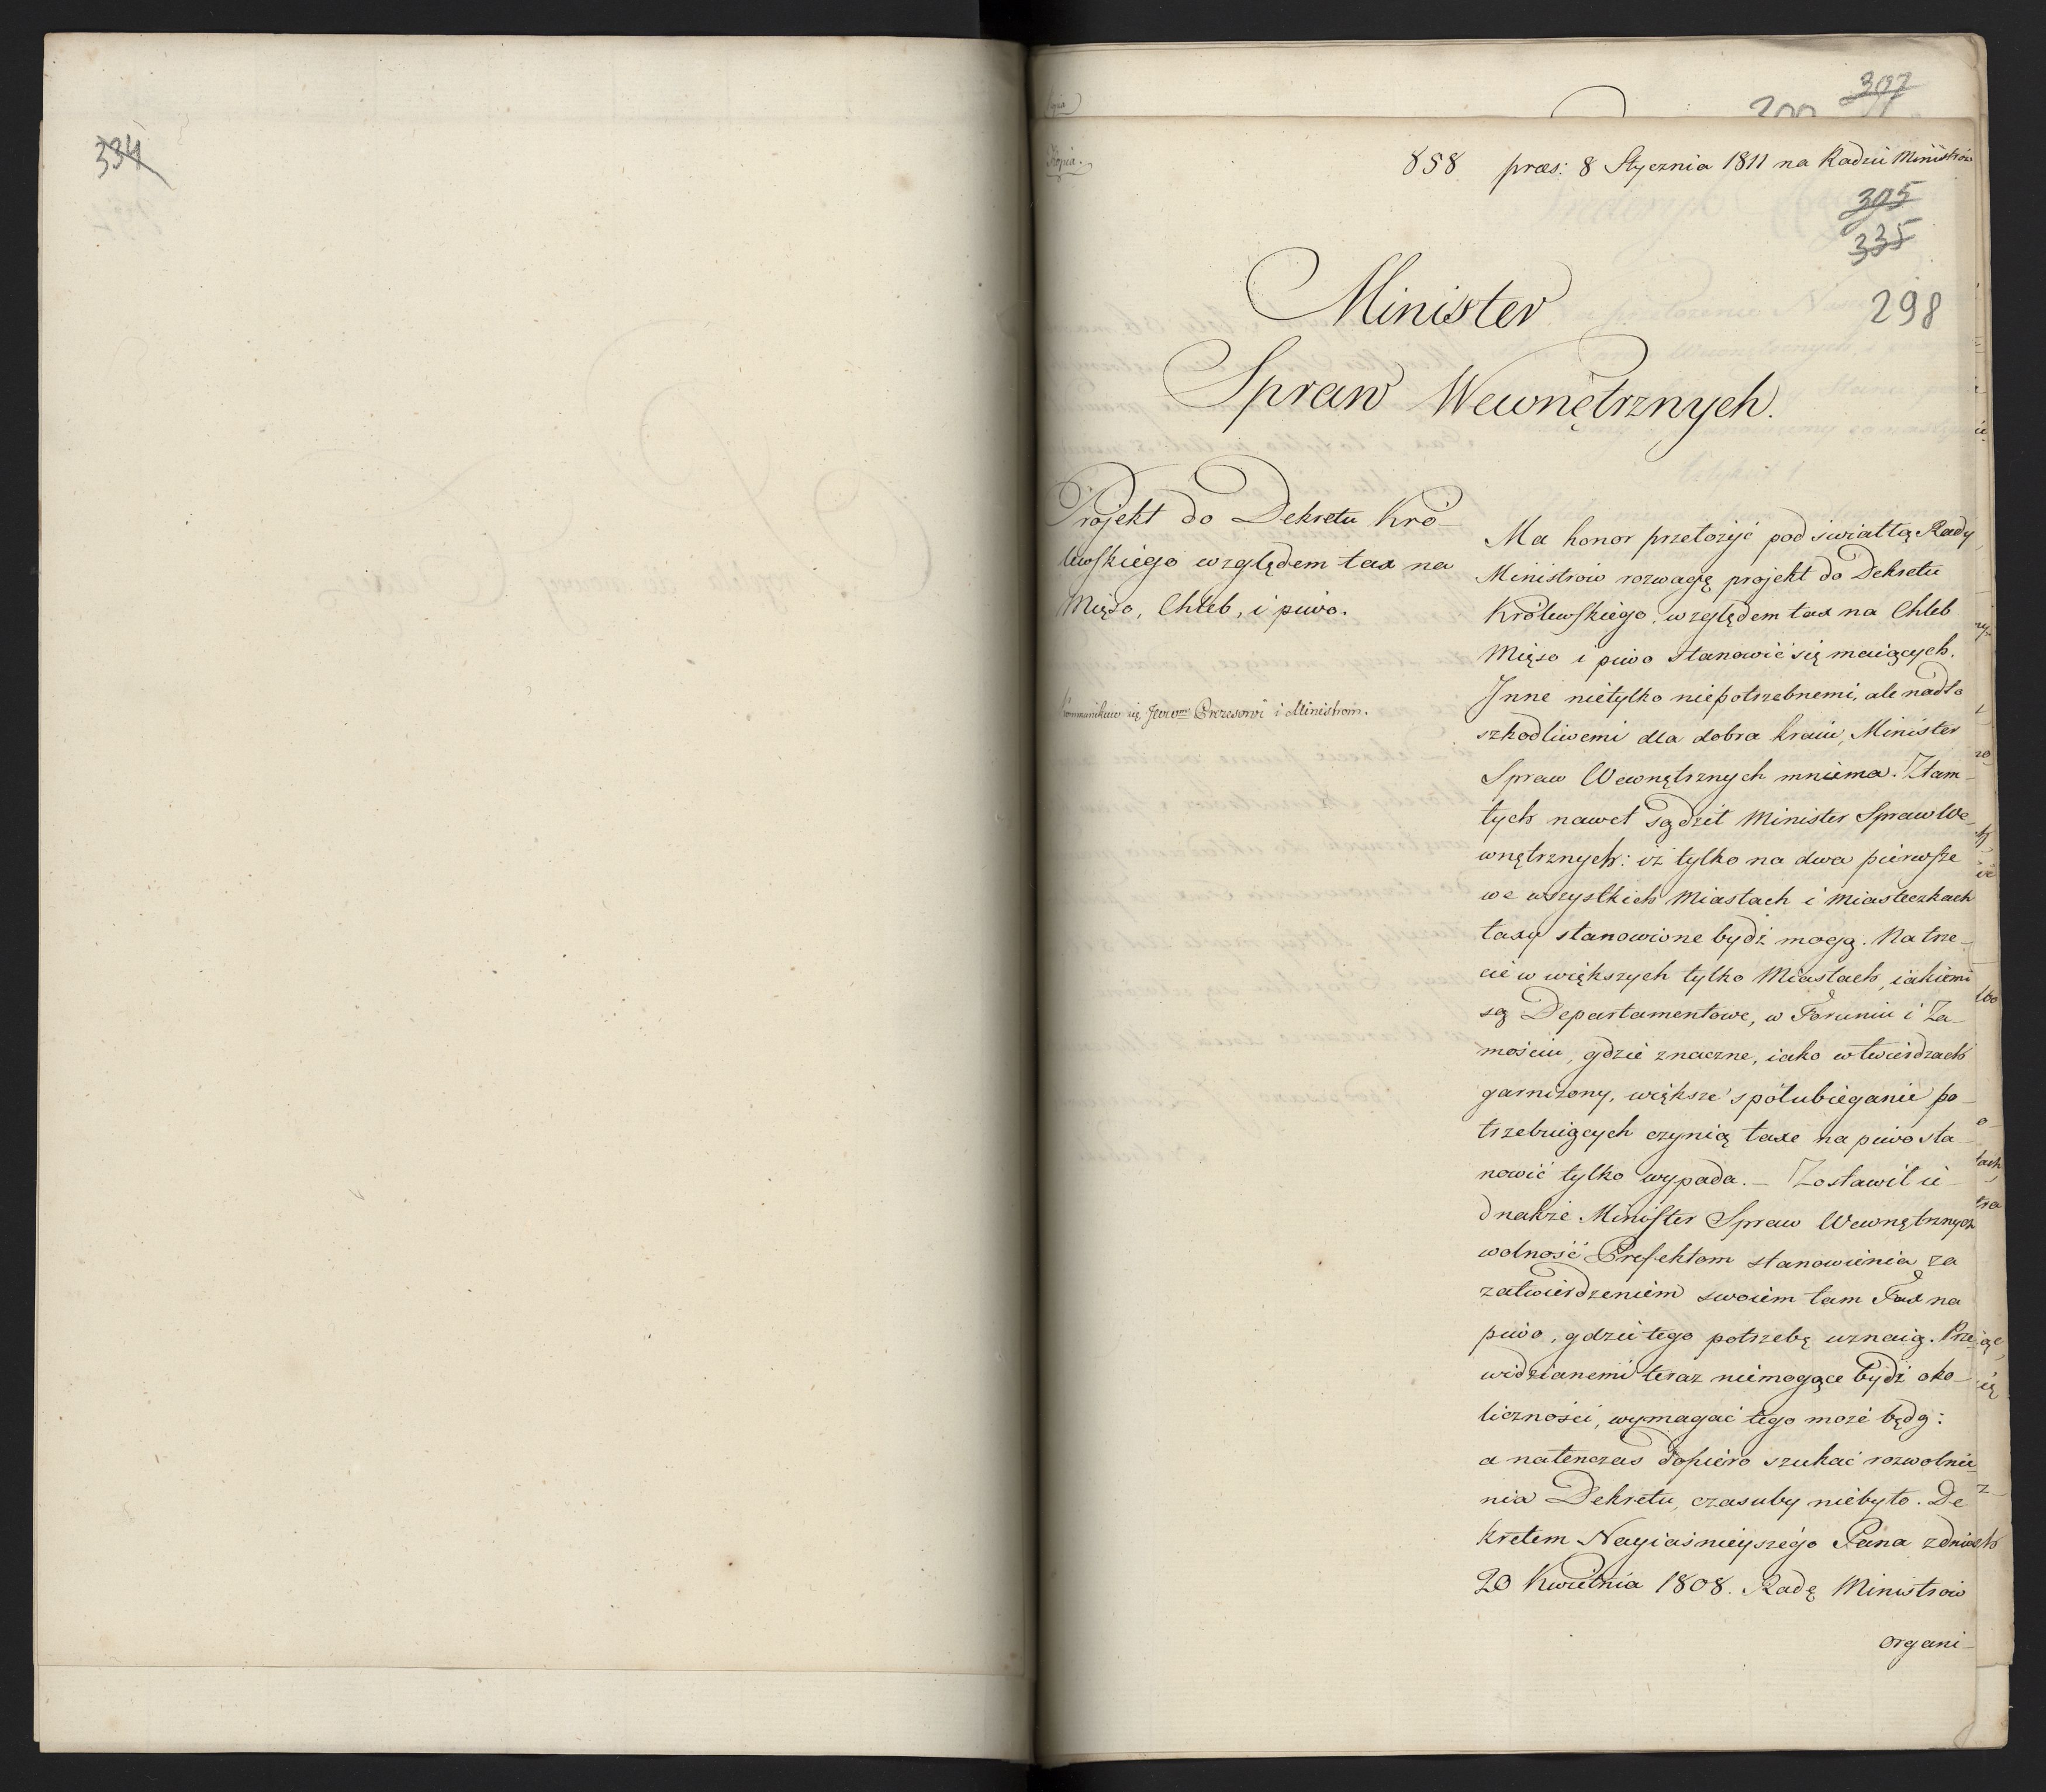 334
307
Kopia.
858 præs: 8 Stycznia 1811 na Radzie Ministrów
305
335
298
Minister
Spraw Wewnętrznych.
Projekt do Dekretu Kró-
lewskiego względem tax na
Mięso, Chleb, i piwo.
Kommunikuie się JWWm Prezesowi i Ministrom.
Ma honor przełożyć pod światłą Rady
Ministrów rozwagę projekt do Dekretu
Królewskiego, względem tax na Chleb
Mięso i piwo stanowić się maiących.
Jnne nietylko niepotrzebnemi, ale nadto
szkodliwemi dla dobra kraiu, Minister
Spraw Wewnętrznych mniema. Ztam-
tych nawet sądził Minister Spraw We-
wnętrznych: iż tylko na dwa pierwsze
we wszystkich Miastach i Miasteczkach
taxy stanowione bydź mogą. Na trze-
cie w większych tylko Miastach, iakiemi
są Departamentowe, w Toruniu i Za-
mościu, gdzie znaczne, iako w twierdzach
garnizony, większe spółubieganie po-
trzebuiących czynią taxe na piwo sta-
nowić tylko wypada. — Zostawił ie-
dnakże Minister Spraw Wewnętrznych
wolność Prefektom stanowienia za
zatwierdzeniem swoiem tam Tax na
piwo, gdzie tego potrzebę uznaią. Prze-
widzianemi teraz niemogące bydź oko-
liczności, wymagać tego może będą:
a natenczas dopiero szukać rozwolnie-
nia Dekretu, czasuby niebyło. De
kretem Nayiaśnieyszego Pana z dnia
20 Kwietnia 1808. Radę Ministrów
organi-